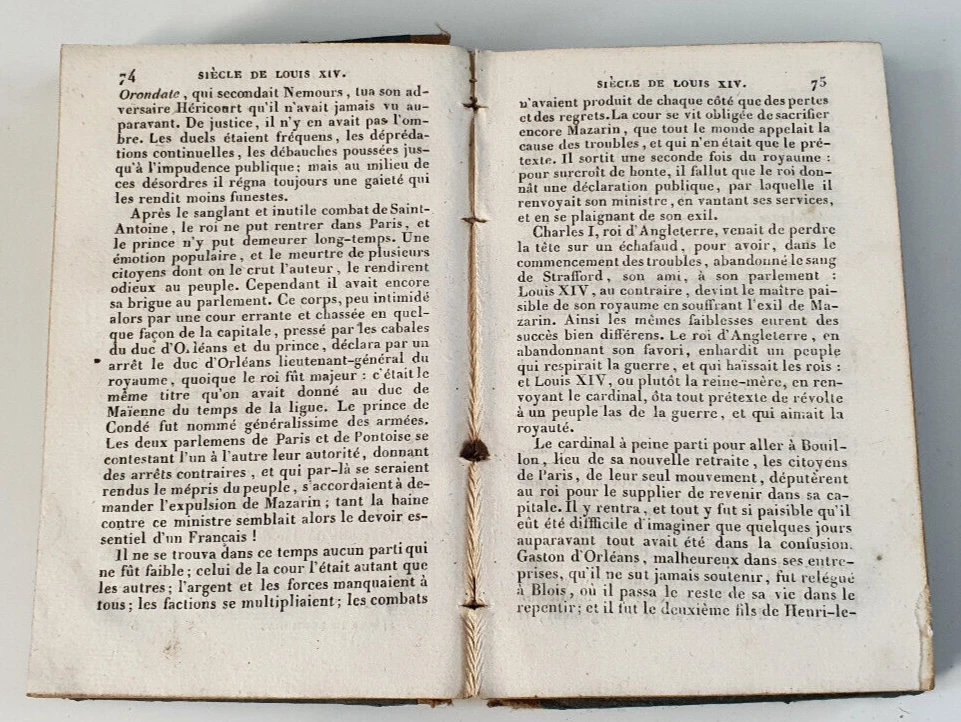 74
SIÈCLE DE LOUIS XIV.
Orondate, qui secondait Nemours, tua son ad-
versaire Héricourt qu'il n'avait jamais vu au-
paravant. De justice, il n'y en avait pas l'om-
bre. Les duels étaient fréquens, les dépréda-
tions continuelles, les débauches poussées jus-
qu'à l'impudence publique; mais au milieu de
ces désordres il régna toujours une gaieté qui
les rendit moins funestes.
Après le sanglant et inutile combat de Saint-
Antoine, le roi ne put rentrer dans Paris, et
le prince n'y put demeurer long-temps. Une
émotion populaire, et le meurtre de plusieurs
citoyens dont on le crut l'auteur, le rendirent
odieux au peuple. Cependant il avait encore
sa brigue au parlement. Ce corps, peu intimidé
alors par une cour errante et chassée en quel-
que façon de la capitale, pressé par les cabales
du duc d'Orléans et du prince, déclara par un
arrêt le duc d'Orléans lieutenant-général du
royaume, quoique le roi fût majeur : c'était le
même titre qu'on avait donné au duc de
Maïenne du temps de la ligue. Le prince de
Condé fut nommé généralissime des armées.
Les deux parlemens de Paris et de Pontoise se
contestant l'un à l'autre leur autorité, donnant
des arrêts contraires, et qui par-là se seraient
rendus le mépris du peuple, s'accordaient à de-
mander l'expulsion de Mazarin; tant la haine
contre ce ministre semblait alors le devoir es-
sentiel d'un Français !
Il ne se trouva dans ce temps aucun parti qui
ne fût faible; celui de la cour l'était autant que
les autres; l'argent et les forces manquaient à
tous; les factions se multipliaient; les combats
SIÈCLE DE LOUIS XIV.
75
n'avaient produit de chaque côté que des pertes
et des regrets. La cour se vit obligée de sacrifier
encore Mazarin, que tout le monde appelait la
cause des troubles, et qui n'en était que le pré-
texte. Il sortit une seconde fois du royaume :
pour surcroît de honte, il fallut que le roi don-
nât une déclaration publique, par laquelle il
renvoyait son ministre, en vantant ses services,
et en se plaignant de son exil.
Charles I, roi d'Angleterre, venait de perdre
la tête sur un échafaud, pour avoir, dans le
commencement des troubles, abandonné le sang
de Strafford, son ami, à son parlement :
Louis XIV, au contraire, devint le maître pai-
sible de son royaume en souffrant l'exil de Ma-
zarin. Ainsi les mêmes faiblesses eurent des
succès bien différens. Le roi d'Angleterre, en
abandonnant son favori, enhardit un peuple
qui respirait la guerre, et qui haïssait les rois :
et Louis XIV, ou plutôt la reine-mère, en ren-
voyant le cardinal, ôta tout prétexte de révolte
à un peuple las de la guerre, et qui aimait la
royauté.
Le cardinal à peine parti pour aller à Bouil-
lon, lieu de sa nouvelle retraite, les citoyens
de Paris, de leur seul mouvement, députèrent
au roi pour le supplier de revenir dans sa ca-
pitale. Il y rentra, et tout y fut si paisible qu'il
eût été difficile d'imaginer que quelques jours
auparavant tout avait été dans la confusion.
Gaston d'Orléans, malheureux dans ses entre-
prises, qu'il ne sut jamais soutenir, fut relégué
à Blois, où il passa le reste de sa vie dans le
repentir; et il fut le deuxième fils de Henri-le-